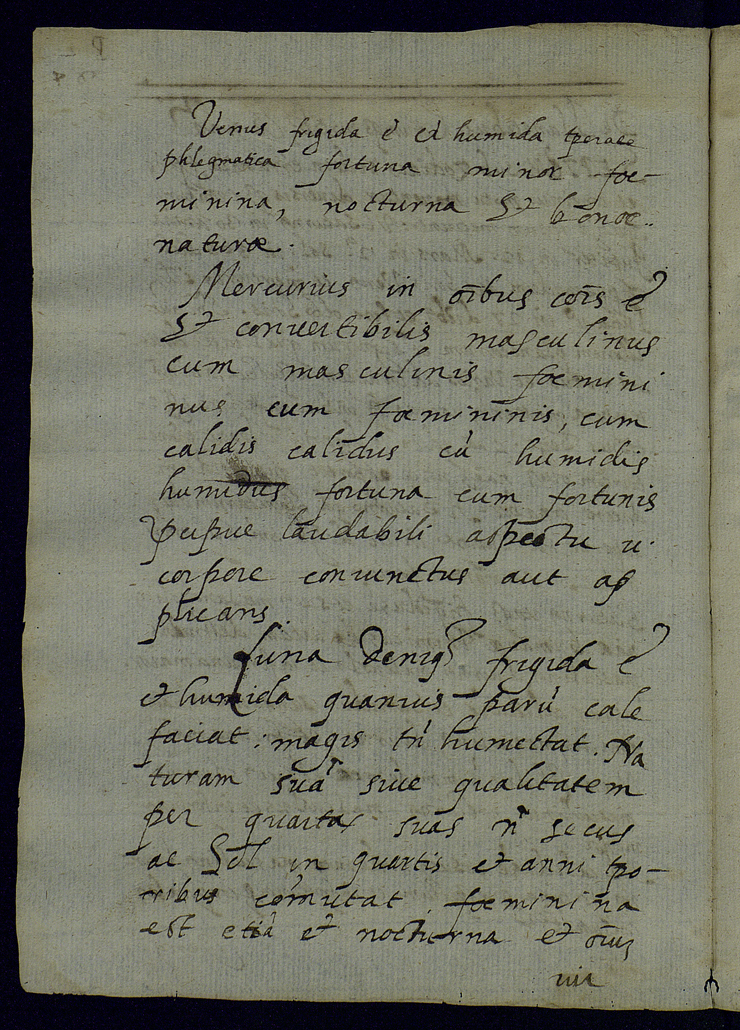 Venus frigida ē et humida tperate
phlegmatica fortuna minor foe-
minina, nocturna et bonoe
naturæ.
Mercurius in oībus cōīs ē
et convertibilis masculinus
cum masculinis foemini
nus cum foemininis, cum
calidis calidus cū humidis
humidus fortuna cum fortunis
laudabili aspectu u.
corpore coniunctus aut ap
plicans.
Luna deniq frigida ē
et humida quanvis parū cale
faciat: magis tn̄ humectat. Na
turam suā sive qualitatem
per quartas suas n̄ secus
ac Sol in quartis et anni tpo-
ribus cōmutat. foeminina
est etiā et nocturna et oīus